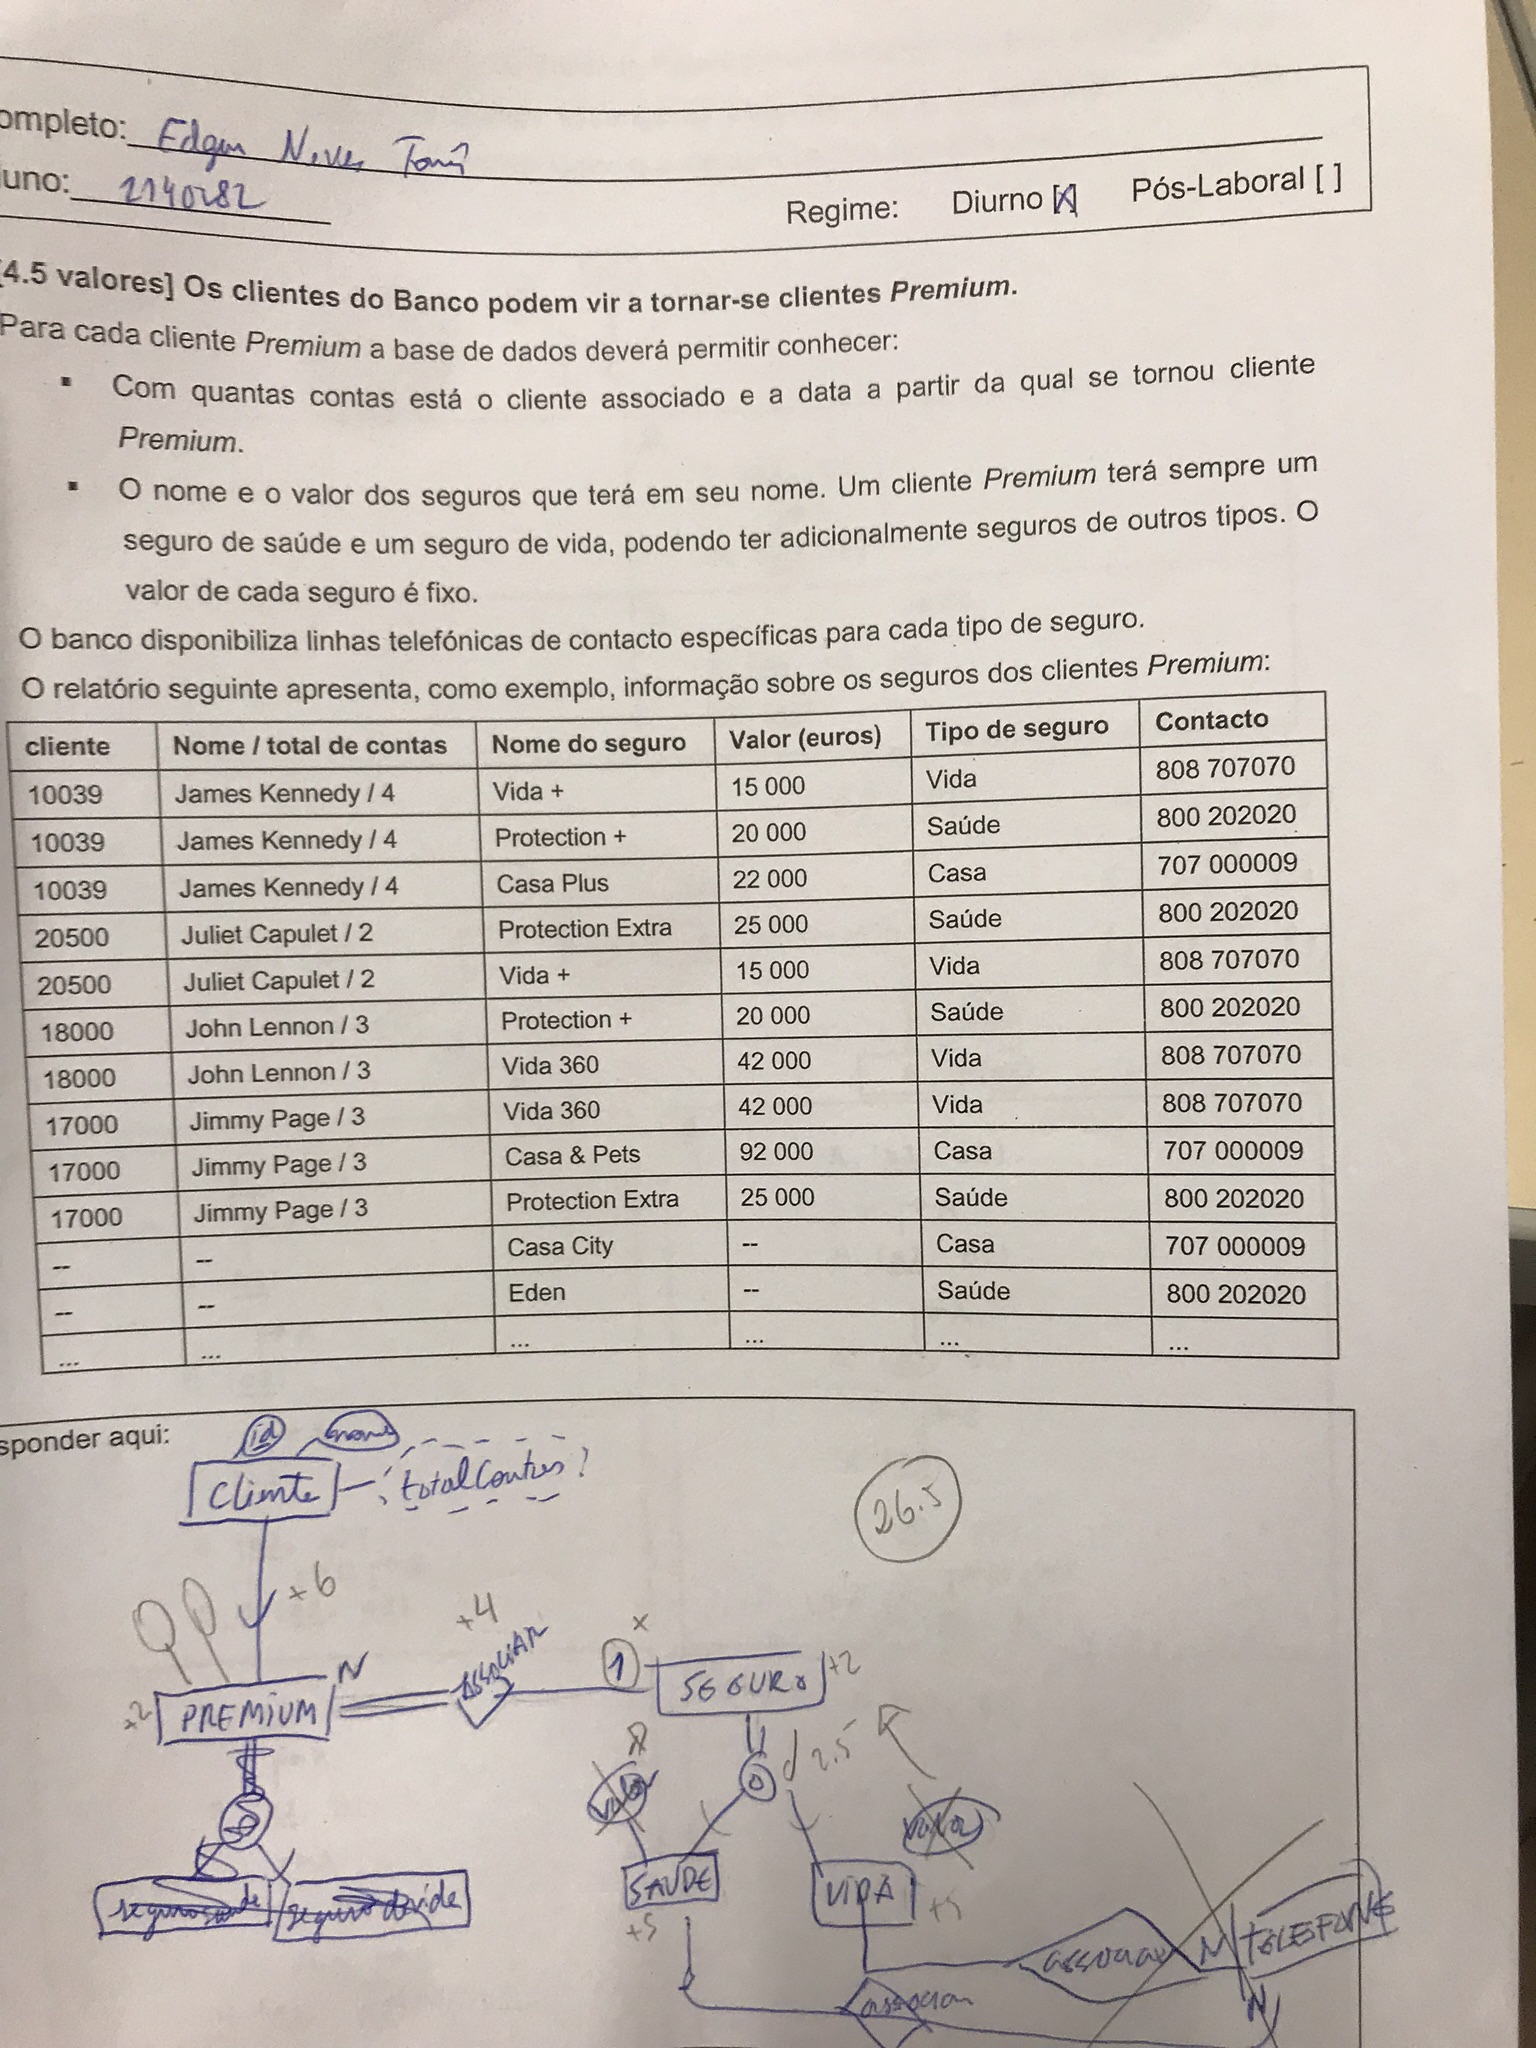 ompleto: Edgar Neves Tomé
luno: 2140282
Regime: Diurno [X] Pós-Laboral [ ]
[4.5 valores] Os clientes do Banco podem vir a tornar-se clientes Premium.
Para cada cliente Premium a base de dados deverá permitir conhecer:
▪ Com quantas contas está o cliente associado e a data a partir da qual se tornou cliente
Premium.
▪ O nome e o valor dos seguros que terá em seu nome. Um cliente Premium terá sempre um
seguro de saúde e um seguro de vida, podendo ter adicionalmente seguros de outros tipos. O
valor de cada seguro é fixo.
O banco disponibiliza linhas telefónicas de contacto específicas para cada tipo de seguro.
O relatório seguinte apresenta, como exemplo, informação sobre os seguros dos clientes Premium:
cliente Nome / total de contas Nome do seguro Valor (euros) Tipo de seguro Contacto
10039 James Kennedy / 4 Vida + 15 000 Vida 808 707070
10039 James Kennedy / 4 Protection + 20 000 Saúde 800 202020
10039 James Kennedy / 4 Casa Plus 22 000 Casa 707 000009
20500 Juliet Capulet / 2 Protection Extra 25 000 Saúde 800 202020
20500 Juliet Capulet / 2 Vida + 15 000 Vida 808 707070
18000 John Lennon / 3 Protection + 20 000 Saúde 800 202020
18000 John Lennon / 3 Vida 360 42 000 Vida 808 707070
17000 Jimmy Page / 3 Vida 360 42 000 Vida 808 707070
17000 Jimmy Page / 3 Casa & Pets 92 000 Casa 707 000009
17000 Jimmy Page / 3 Protection Extra 25 000 Saúde 800 202020
-- -- Casa City -- Casa 707 000009
-- -- Eden -- Saúde 800 202020
... ... ... ... ... ...
sponder aqui:
id nome
Cliente totalContas?
26.5
+6
+4
ASSOCIAR
x
N
1
+2 PREMIUM
SEGURO +2
d 2.5
valor
valor
SAUDE
VIDA
seguro saude seguro de vida
+5
associar N TELEFONE
associar
N